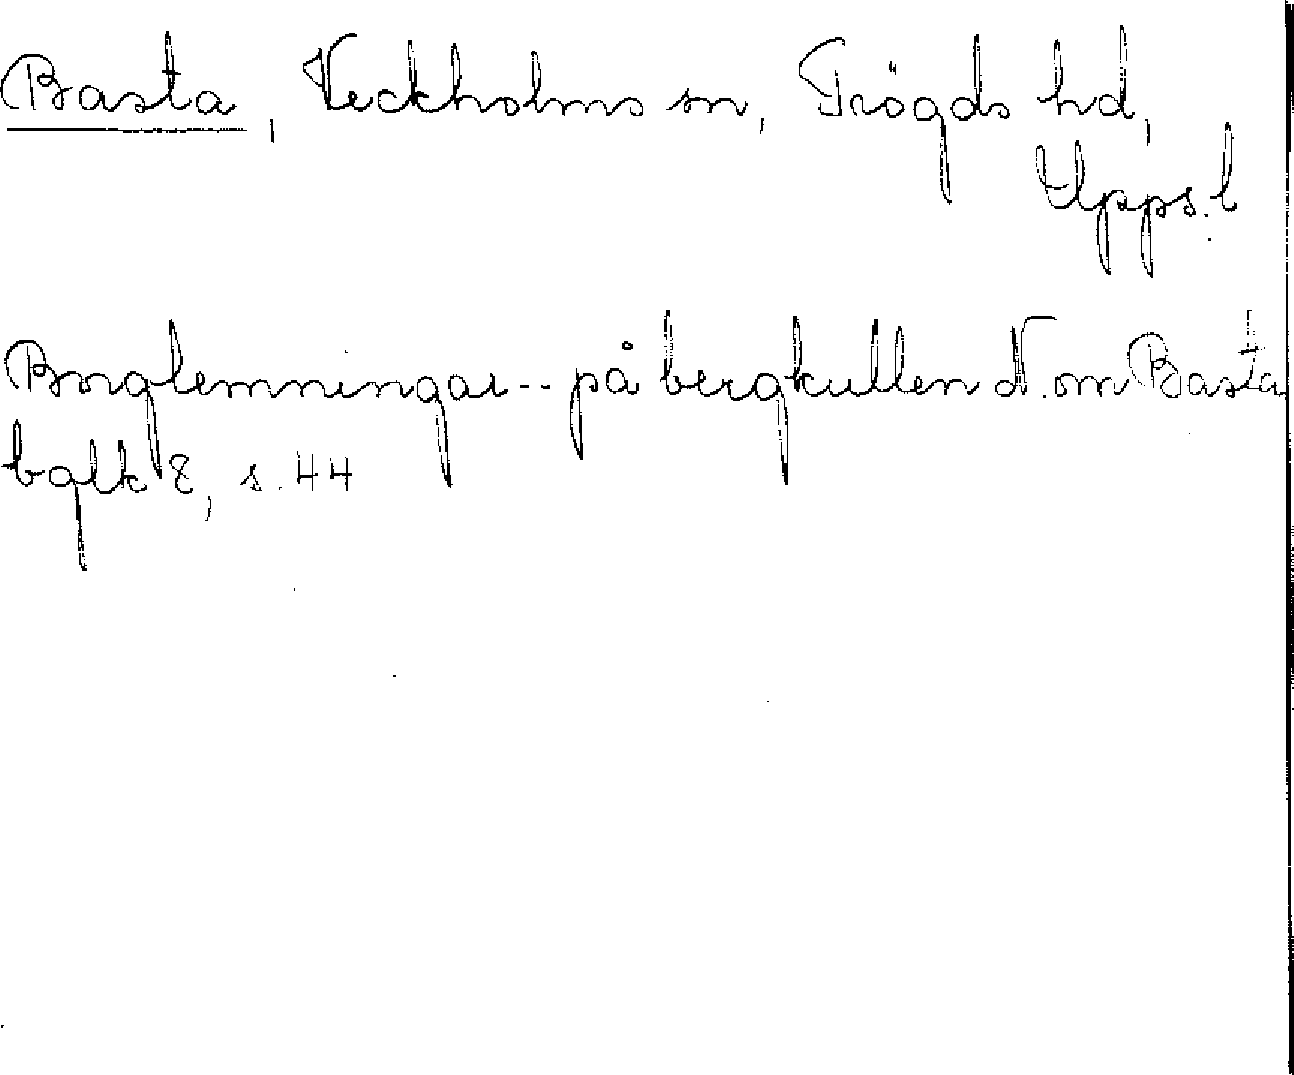 Basta, Veckholms sn, Trögds hd,
Upps. l
Borglemningar -- på bergkullen N. om Basta
bglk 8, s. 44